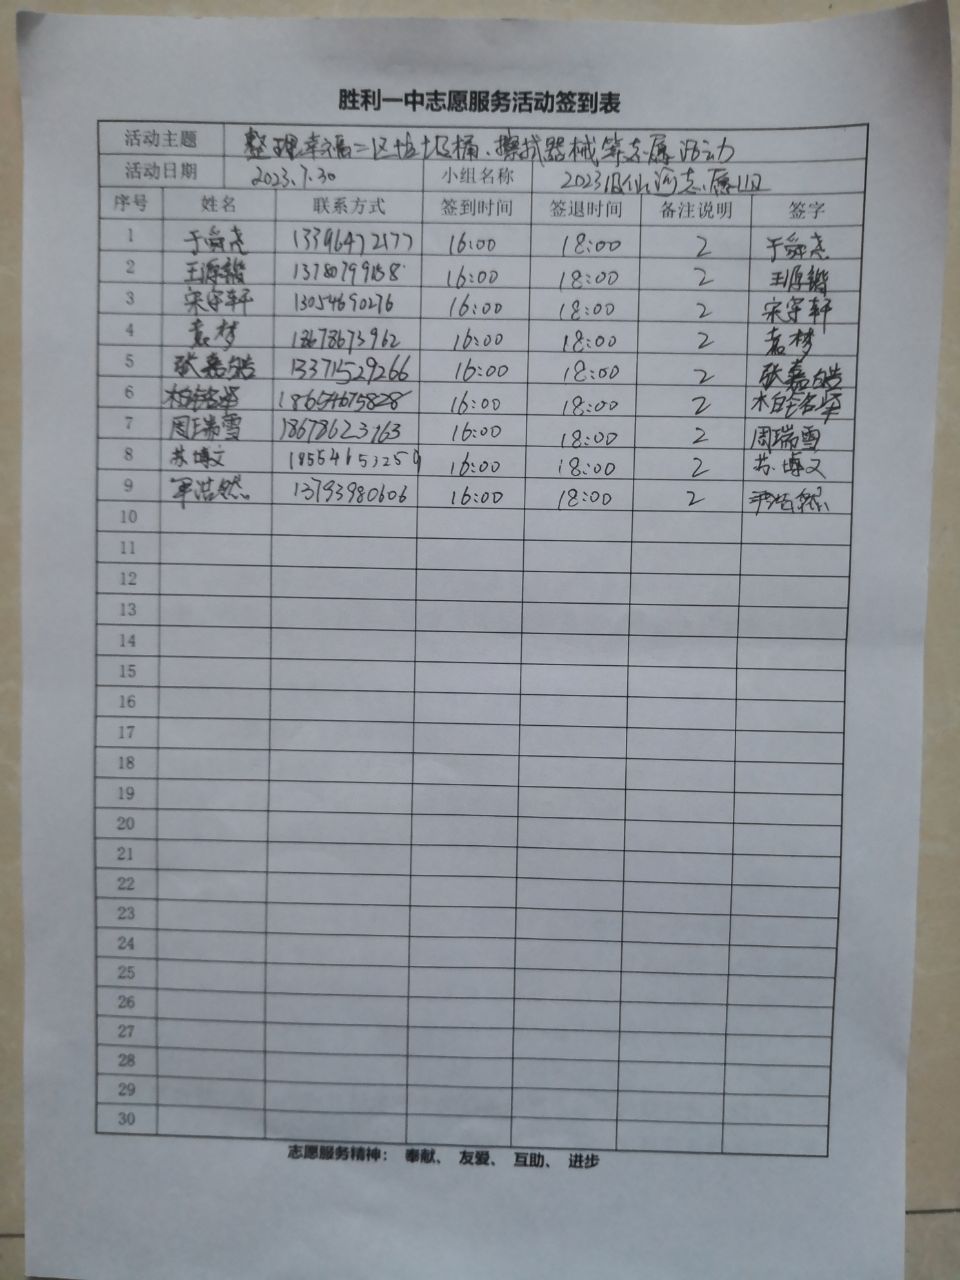 胜利一中志愿服务活动签到表
活动主题 整理幸福二区垃圾桶、擦拭器械等志愿活动
活动日期 2023.7.30 小组名称 2023级仙河志愿
序号 姓名 联系方式 签到时间 签退时间 备注说明 签字
1 于舜尧 13396472177 16:00 18:00 2 于舜尧
2 王源 16:00 18:00 2 王源
3 宋宇轩 13054690276 16:00 18:00 2 宋宇轩
4 袁梦 18678673962 16:00 18:00 2 袁梦
5 张嘉皓 13371529266 16:00 18:00 2 张嘉皓
6 18654675828 16:00 18:00 2
7 周瑞雪 18678623763 16:00 18:00 2 周瑞雪
8 苏博文 16:00 18:00 2 苏博文
9 浩然 13793980606 16:00 18:00 2 浩然
10
11
12
13
14
15
16
17
18
19
20
21
22
23
24
25
26
27
28
29
30
志愿服务精神： 奉献、 友爱、 互助、 进步